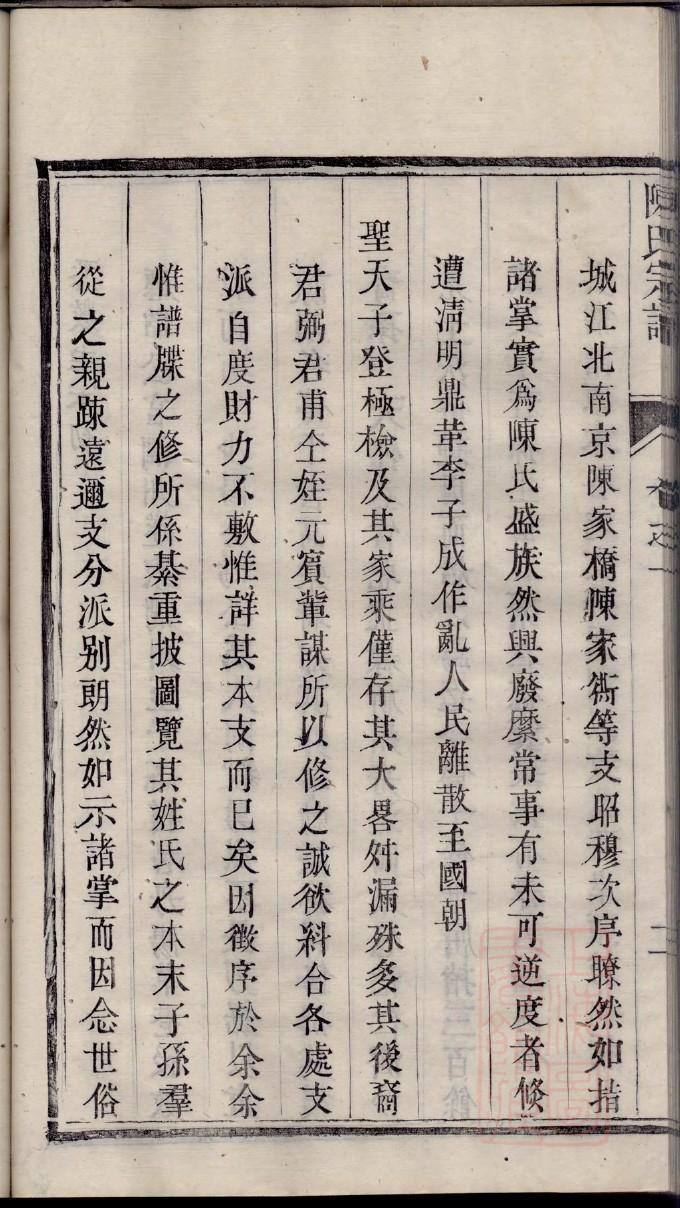 陳氏宗譜
卷之一
二
城江北南京陳家橋陳家衖等支昭穆次序瞭然如指
諸掌實爲陳氏盛族然興廢縻常事有未可逆度者倐
遭淸明鼎革李子成作亂人民離散至國朝
聖天子登極檢及其家乘僅存其大畧舛漏殊多其後裔
君弼君甫仝姪元賔軰謀所以修之誠欲糾合各處支
派自度財力不敷惟詳其本支而已矣因徵序於余余
惟譜牒之修所係綦重披圖覽其姓氏之本末子孫羣
從之親踈遠邇支分派别朗然如示諸掌而因念世俗